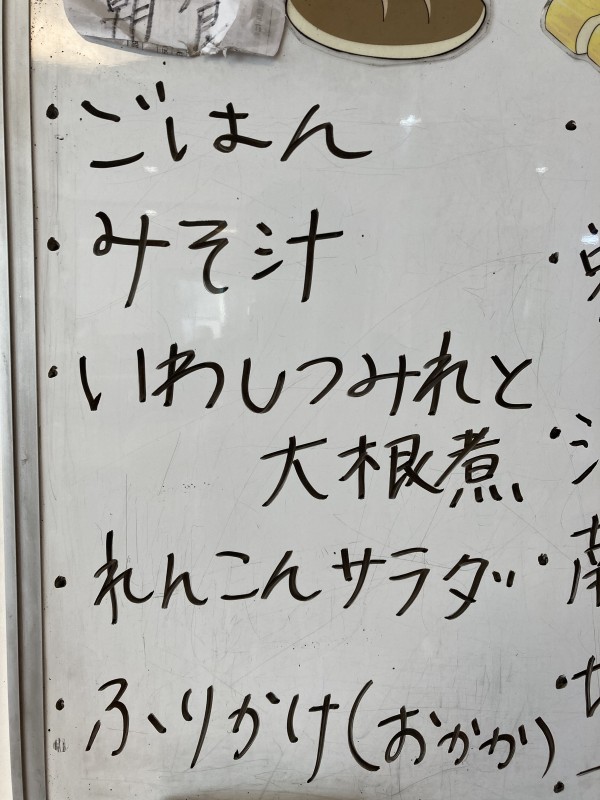 ・ごはん
・みそ汁
・いわしつみれと
大根煮
・れんこんサラダ
・ふりかけ(おかか)